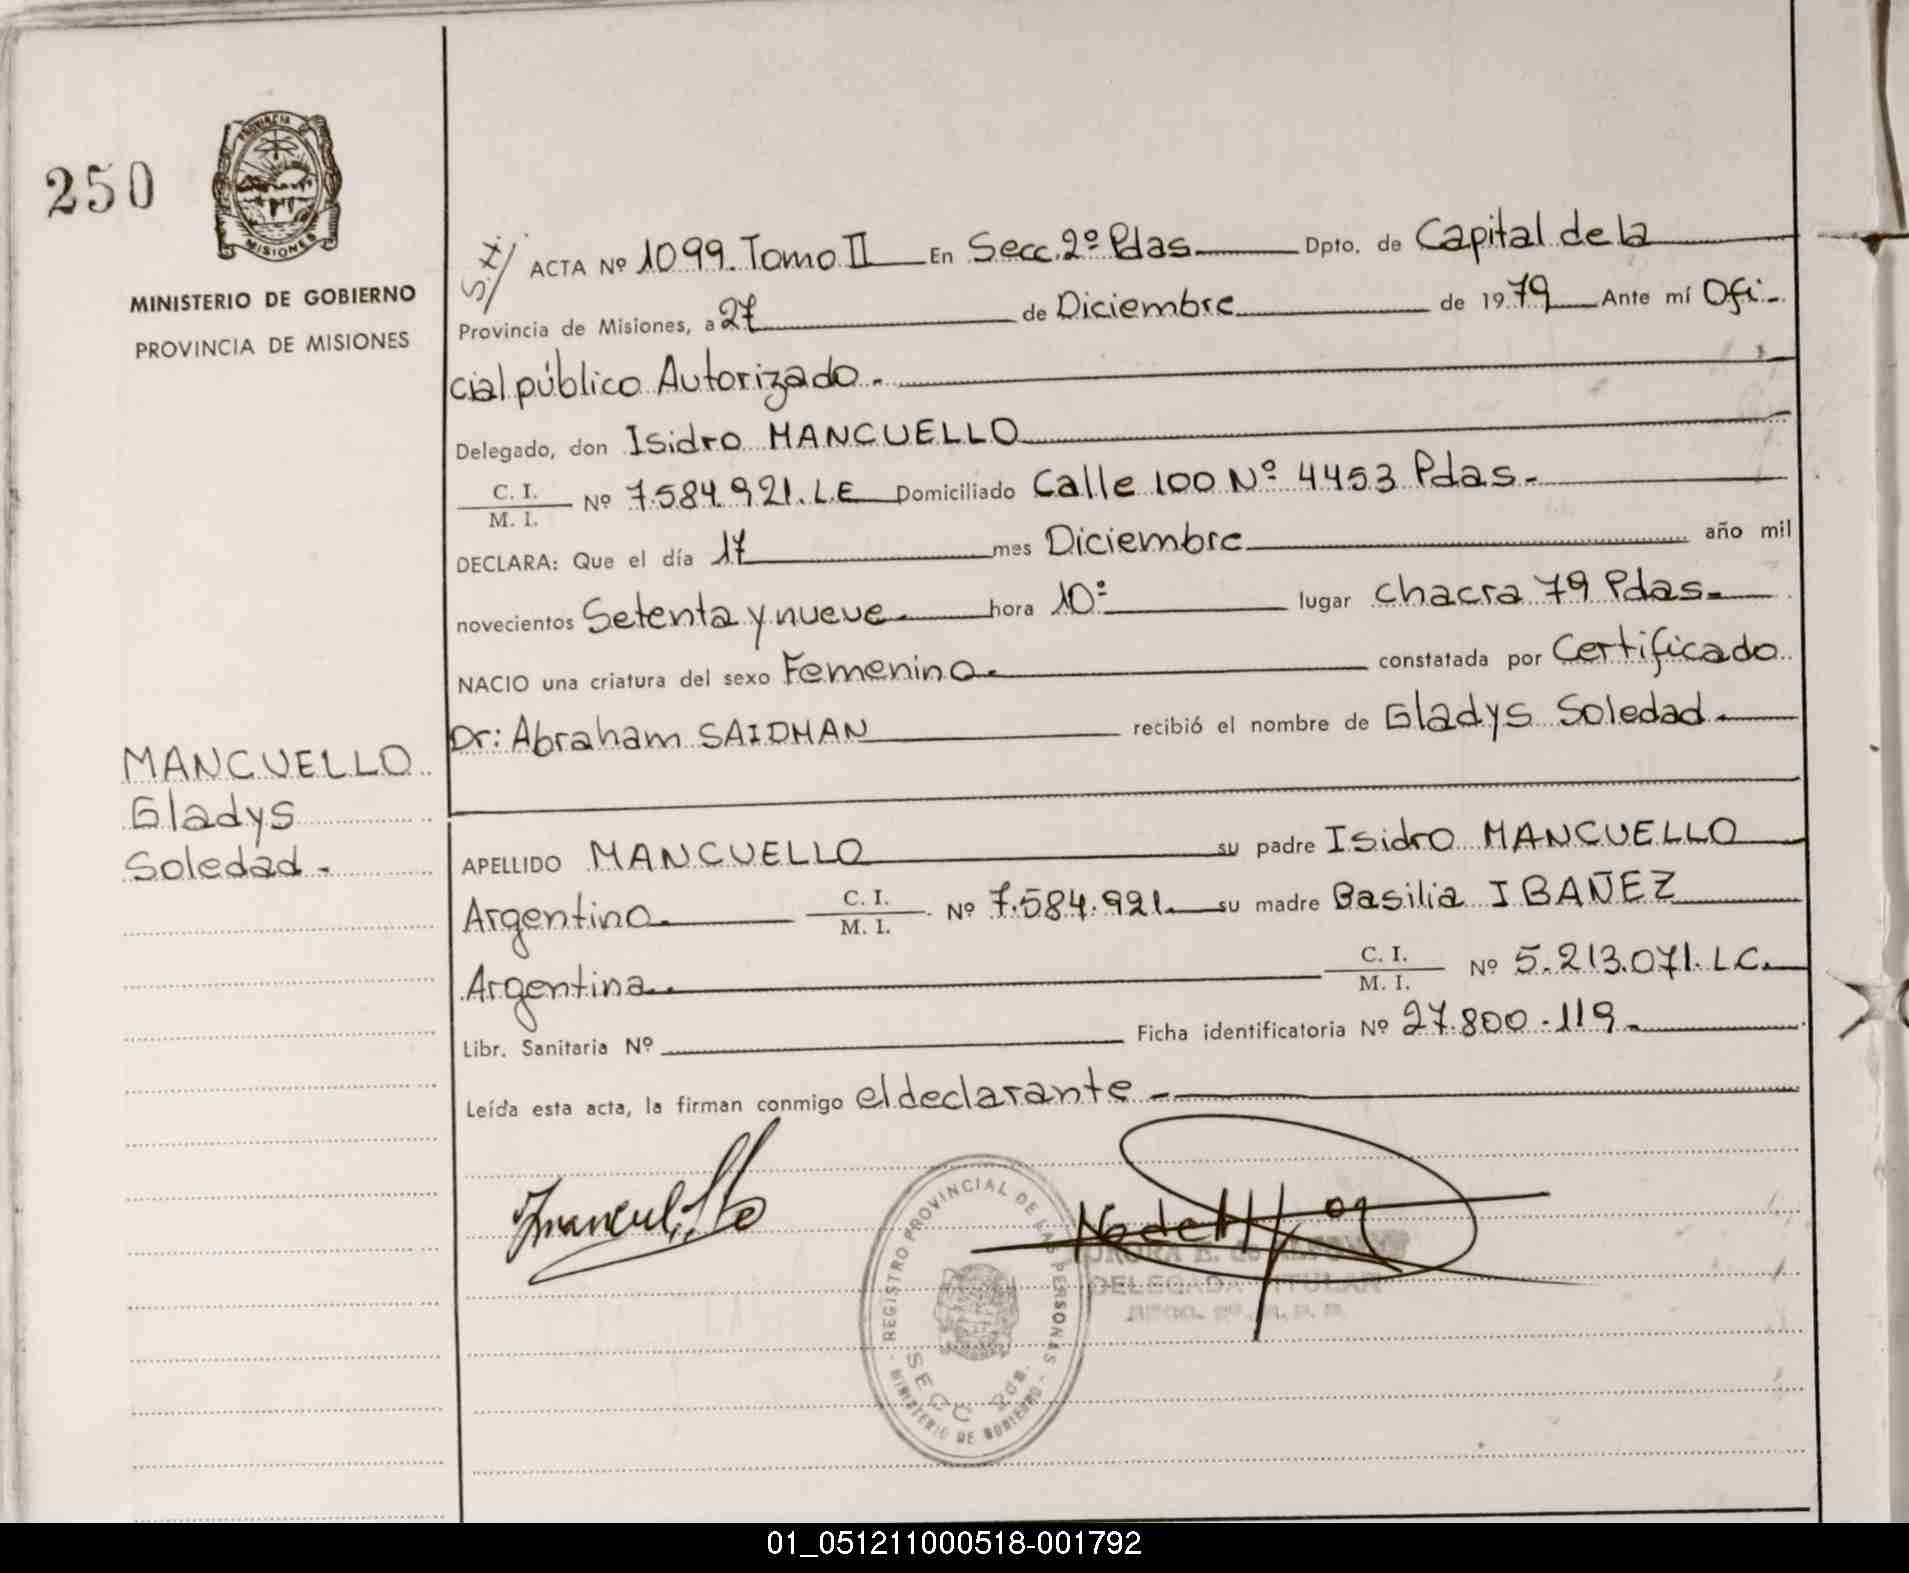 250
PROVINCIA DE
MISIONES
MINISTERIO DE GOBIERNO
PROVINCIA DE MISIONES
ACTA Nº 1099. Tomo II En Secc. 2º Pdas. Dpto. de Capital de la
Provincia de Misiones, a 27 de Diciembre de 1979 Ante mí Ofi-
cial público Autorizado.
Delegado, don Isidro MANCUELLO
C. I.
M. I. Nº 7.584.921. LE Domiciliado Calle 100 Nº 4453 Pdas.
DECLARA: Que el día 17 mes Diciembre año mil
novecientos Setenta y nueve. hora 10: lugar chacra 79 Pdas.
NACIO una criatura del sexo Femenino. constatada por Certificado
Dr: Abraham SAIDMAN recibió el nombre de Gladys Soledad.
MANCUELLO
Gladys
Soledad.-
APELLIDO MANCUELLO su padre Isidro MANCUELLO
Argentino. C. I.
M. I. Nº 7.584.921. su madre Basilia IBAÑEZ
Argentina. C. I.
M. I. Nº 5.213.071. LC.
Libr. Sanitaria Nº Ficha identificatoria Nº 27.800.119.
Leída esta acta, la firman conmigo el declarante.-
REGISTRO PROVINCIAL DE LAS PERSONAS
SECC 2da.
MINISTERIO DE GOBIERNO
DELEGADA TITULAR
01_051211000518-001792